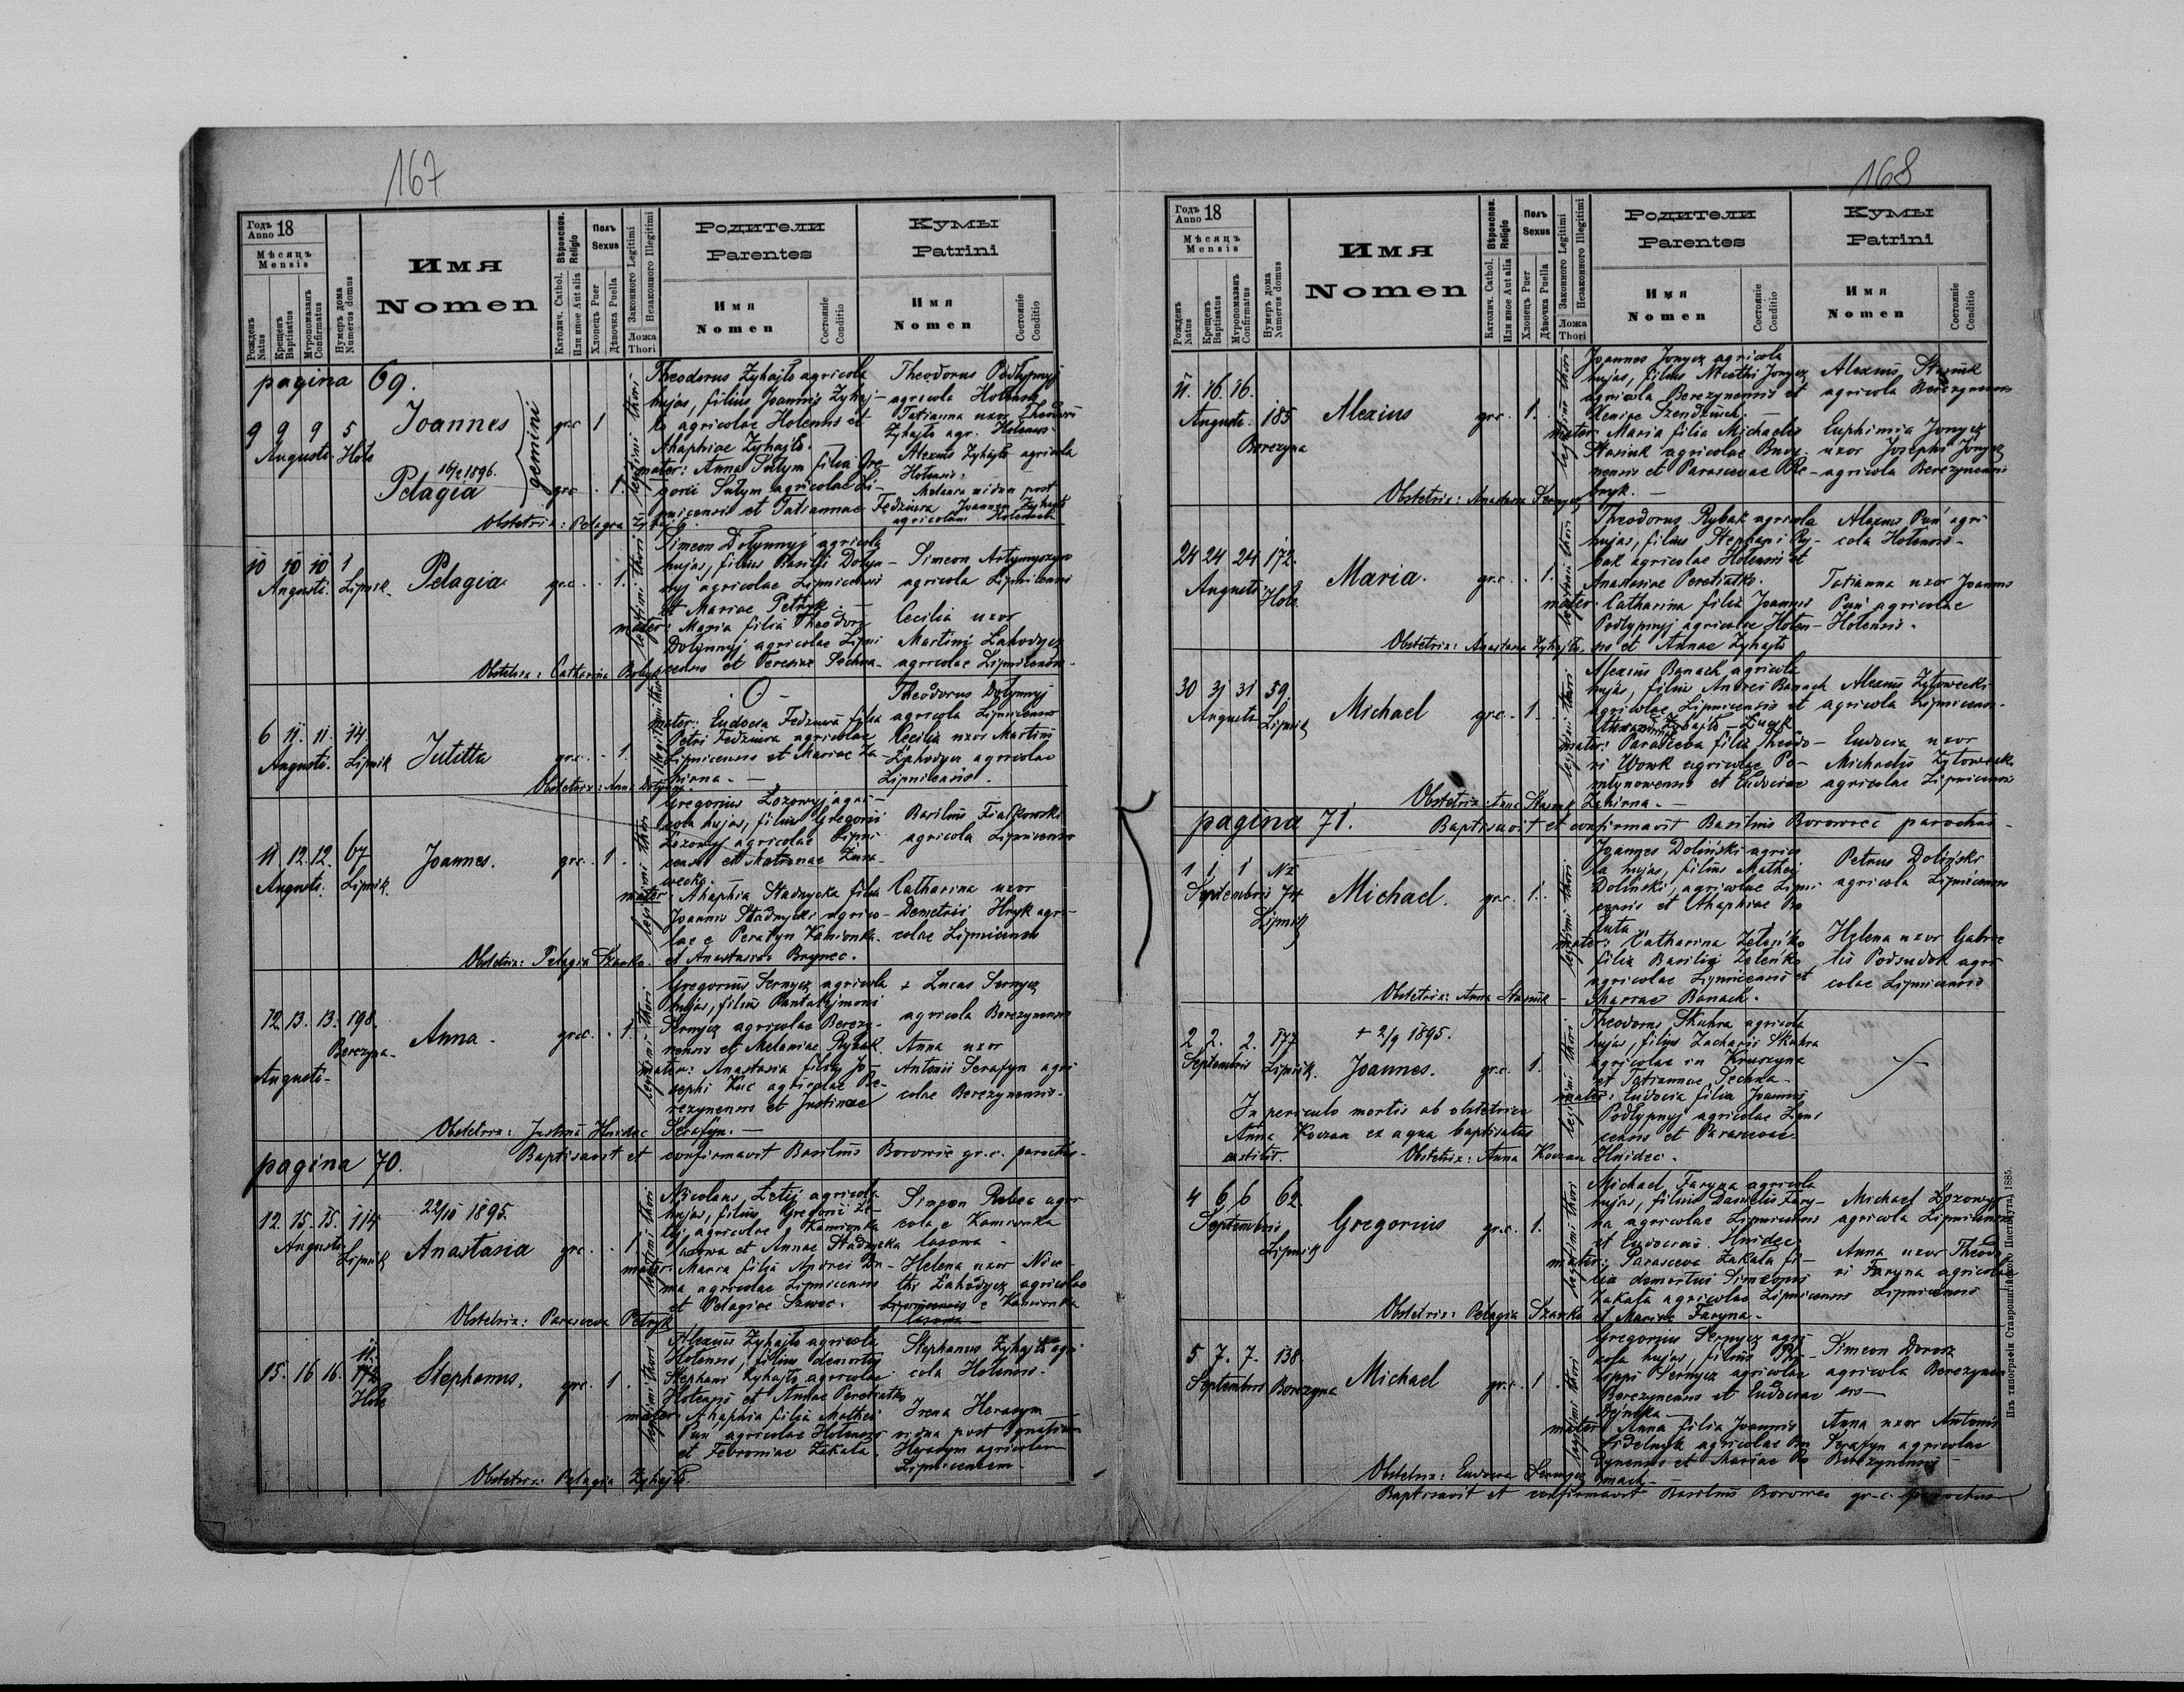 167
Годъ Anno 18
Мѣсяцъ Mensis
Рожденъ Natus
Крещенъ Baptisatus
Мѵропомазанъ Confirmatus
Нумеръ дома Numerus domus
Имя
Nomen
Вѣроиспов. Religio
Католич. Cathol.
Или иное Aut alia
Полъ Sexus
Хлопецъ Puer
Дѣвочка Puella
Законного Legitimi
Незаконного Illegitimi
Ложа Thori
Родители
Parentes
Имя
Nomen
Состояніе
Conditio
Кумы
Patrini
Имя
Nomen
Состояніе
Conditio
pagina 69.
9 9 9 5
Augusti Hole
Joannes gr.c 1
16/2 1896.
Pelagia gr.c . 1.
gemini
legitimi thori
Theodorus Zyhajło agricola
hujas, filius Joannis Zyhaj-
ło agricolae Holensis et
Ahaphiae Zyhajło. —
mater: Anna Sułym filia Gre-
gorii Sułym agricolae Li-
pnicensis et Tatiannae Fedziura
Theodorus Podłypnyj
agricola Holensis
Tatianna uxor Theodori
Zyhajło agr. Holensis.
Alexius Zyhajło agricola
Holensis.
vidua post
Joannem Zyhajło
agricolam Holensem
Obstetrix: Pelagia Zyhajło.
10 10 10 1
Augusti. Lipnik.
Pelagia gr.c. . 1.
legitimi thori
Simeon Dołynnyj agricola
hujas, filius Basilii Dołyn-
nyj agricolae Lipnicensis
et Mariae Petryk. —
mater: Maria filia Theodori
Dołynnyj agricolae Lipni
censis et Teresiae Sochna-
Simeon Artymyszyn
agricola Lipnicensis
Cecilia uxor
Martini Łahodycz
agricolae Lipnicensis.
Obstetrix: Catharina
6 11. 11. 14.
Augusti. Lipnik
Julitta gr.c. . 1.
illegitimi thori
O —
mater: Eudocia Fedziura filia
Petri Fedziura agricolae
Lipnicensis et Mariae Za-
hirna. —
Theodorus Dołynnyj
agricola Lipnicensis
Cecilia uxor Martini
Łahodycz agricolae
Lipnicensis.
Obstetrix: Anna Dołynna.
11 12. 12. 67
Augusti. Lipnik.
Joannes. gr.c. 1.
legitimi thori
Gregorius Łozowyj agri-
cola hujas, filius Gregorii
Łozowyj agricolae Lipni
censis et Matronae Żura-
wecka.
mater Ahaphia Stadnycka filia
Joannis Stadnycki agrico-
lae e Peratyn Kamionka.
et Anastasiae Brynec.
Basilius Fiałkowski
agricola Lipnicensis
Catharina uxor
Demetrii Hryk agri-
colae Lipnicensis
Obstetrix: Pelagia Szarko.
12 13. 13. 198.
Berezyna-
Augusti-
Anna- gr.c. . 1.
legitimi thori
Gregorius Sernycz agricola
hujas, filius Pantalejmonis
Sernycz agricolae Berezy-
nensis et Melaniae Rybak.
mater: Anastasia filia Jo-
sephi Kuc agricolae Be-
rezynensis et Justinae
Serafyn. —
+ Lucas Sernycz
agricola Berezynensis
Anna uxor
Antonii Serafyn agri
colae Berezynensis.
Obstetrix: Justina Hnidec
pagina 70.
Baptisavit et confirmavit Basilius Borowiec gr. c. parochus-
12. 15. 15. 114
Augusti Lipnik
22/10 1895
Anastasia gr.c. . 1
legitimi thori
Nicolaus Łetij agricola
hujas, filius Gregorii Łe-
tij agricolae e Kamionka
lasowa et Annae Stadnycka
mater: Maria filia Andrei
agricolae Lipnicensis
et Pelagiae Szwec.
Simeon Rubec agri
cola e Kamionka
lasowa -
Helena uxor Nice-
thi Łahodycz agricolae
Lipnicensis e Kamionka
lasowa —
Obstetrix: Parasceva Petryk
15. 16 16. 172
Hole
Stephanus. gr.c. 1.
legitimi thori
Alexius Zyhajło agricola
Holensis, filius demortui
Stephani Zyhajło agricolae
Holensis et Annae Peretiatko
mater: Ahaphia filia Mathei
Pan agricolae Holensis
et Febroniae Zakała.
Stephanus Zyhajło agri
cola Holensis.
Irena Herasym
vidua post Ignatium
Herasym agricolam
Lipnicensem.
Obstetrix: Pelagia Zyhajło.
168
Годъ Anno 18
Мѣсяцъ Mensis
Рожденъ Natus
Крещенъ Baptisatus
Мѵропомазанъ Confirmatus
Нумеръ дома Numerus domus
Имя
Nomen
Вѣроиспов. Religio
Католич. Cathol.
Или иное Aut alia
Полъ Sexus
Хлопецъ Puer
Дѣвочка Puella
Законного Legitimi
Незаконного Illegitimi
Ложа Thori
Родители
Parentes
Имя
Nomen
Состояніе
Conditio
Кумы
Patrini
Имя
Nomen
Состояніе
Conditio
11. 16. 16.
Augusti. 185
Berezyna
Alexius gr.c. 1.
legitimi thori
Joannes Jonycz agricola
hujas, filius Nicethi Jonycz
agricola Berezynensis et
Xeniae Szendziuch.
mater: Maria filia Michaelis
Stasiuk agricolae
nensis et Parascevae
Alexius Stasiuk
agricola Berezynensis
Euphimia Jonycz
uxor Josephi Jonycz
agricola Berezynensis
Obstetrix: Anastasia Sernycz
24 24 24 172.
Augusti Hole.
Maria. gr.c. . 1.
legitimi thori
Theodorus Rybak agricola
hujas, filius Stephani Ry-
bak agricolae Holensis et
Anastasiae Peretiatko.
mater: Catharina filia Joannis
Podłypnyj agricolae Holen-
sis et Annae Zyhajło
Alexius Pan agri
cola Holensis-
Tatianna uxor Joannis
Pan agricolae
Holensis.
Obstetrix: Anastasia Zyhajło.
30 31 31 59.
Augusti Lipnik
Michael gr.c. 1.
legitimi thori
Alexius Banach agricola
hujas, filius Andrei Banach
agricolae Lipnicensis et
mater: Parasceva filia Theodo-
ri Wowk agricolae Po-
młynowensis et Eudociae
Zahirna. —
Alexius Żytowecki
agricola Lipnicensis.
Eudocia uxor
Michaelis Żytowecki
agricolae Lipnicensis
Obstetrix Anna Stasiuk
pagina 71.
Baptisavit et confirmavit Basilius Borowiec parochus-
1 1 1 №
Septembris 74
Lipnik
Michael. gr.c. 1.
legitimi thori
Joannes Doliński agrico
la hujas, filius Mathei
Doliński, agricolae Lipni
censis et Ahaphiae
mater: Catharina Zeleńko
filia Basilii Zeleńko
agricolae Lipnicensis et
Mariae Banach.
Petrus Doliński
agricola Lipnicensis
Helena uxor Gabrie
lis Podsudok agri
colae Lipnicensis
Obstetrix: Anna Stasiuk —
2 2. 2. 177
Septembris Lipnik.
+ 2/9 1895.
Joannes. gr.c. 1.
In periculo mortis ab obstetrice
Anna Koczan ex aqua baptisatus
exstitit.
legitimi thori
Theodorus Skuhra agricola
hujas, filius Zacharii Skuhra
agricolae in Kruszyna
et Tatiannae
mater: Eudocia filia Joannis
Podłypnyj agricolae Lipni
censis et Parascevae
Hnidec.
Obstetrix: Anna Koczan
4 6 6 62
Septembris Lipnik
Gregorius gr.c. 1.
legitimi thori
Michael Faryna agricola
hujas, filius Danielis Fary-
na agricolae Lipnicensis
et Eudociae Hnidec
mater: Parasceva Zakała fi-
lia demortui Simeonis
Zakała agricolae Lipnicensis
et Mariae Faryna.
Michael Łozowyj
agricola Lipnicensis
Anna uxor Theodo
ri Faryna agricolae
Lipnicensis
Obstetrix: Pelagia Szarko
5 7. 7. 138
Septembris Berezyna
Michael gr.c. 1.
legitimi thori
Gregorius Sernycz agri
cola hujas, filius Phi-
lippi Sernycz agricolae
Berezynensis et Eudociae
mater Anna filia Joannis
agricolae
et Mariae
Simeon Dorosz
agricola Berezynen
sis —
Anna uxor Antonii
Serafyn agricolae
Berezynensis
Obstetrix: Eudocia Sernycz
Baptisavit et confirmavit Basilius Borowiec gr. c. parochus
Изъ типографіи Ставропигійского Института, 1885.